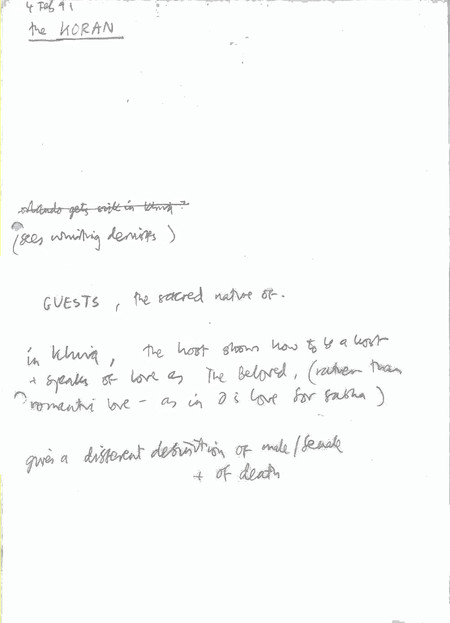 4 Feb 91
the KORAN
Orlando gets sick in Khiva?
(sees whirling dervishes)
GUESTS, the sacred nature of.
in Khiva, the host shows how to be a host
+ speaks of love as The Beloved, (rather than
romantic love - as in O's love for Sasha)
gives a different definition of male/female
+ of death